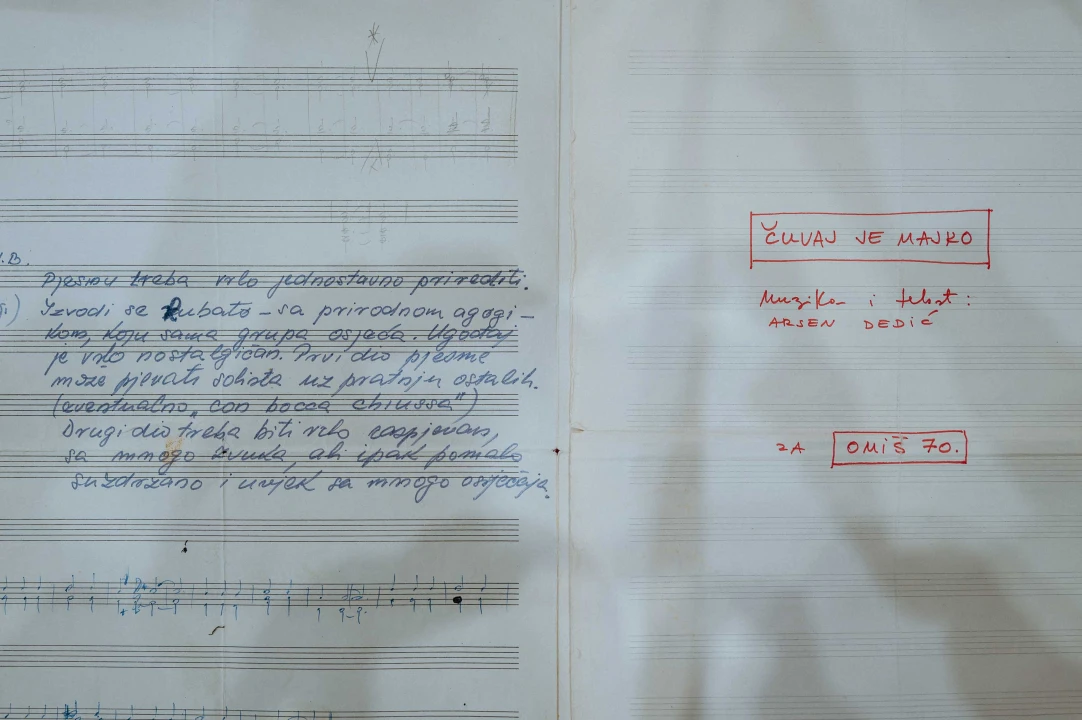 N.B.
Pjesmu treba vrlo jednostavno prirediti.
Izvodi se Rubato - sa prirodnom agogi-
kom, koju sama grupa osjeća. Ugođaj
je vrlo nostalgičan. Prvi dio pjesme
može pjevati solista uz pratnju ostalih.
(eventualno "con bocca chiussa")
Drugi dio treba biti vrlo raspjevan,
sa mnogo zvuka, ali ipak pomalo
suzdržano i uvjek sa mnogo osjećaja.
ČUVAJ JE MAJKO
Muzika i tekst:
ARSEN DEDIĆ
ZA OMIŠ 70.